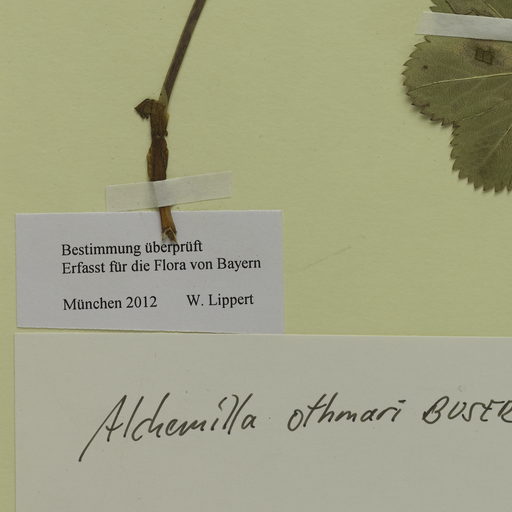 Bestimmung überprüft
Erfasst für die Flora von Bayern
München 2012 W. Lippert
Alchemilla othmari BUSER